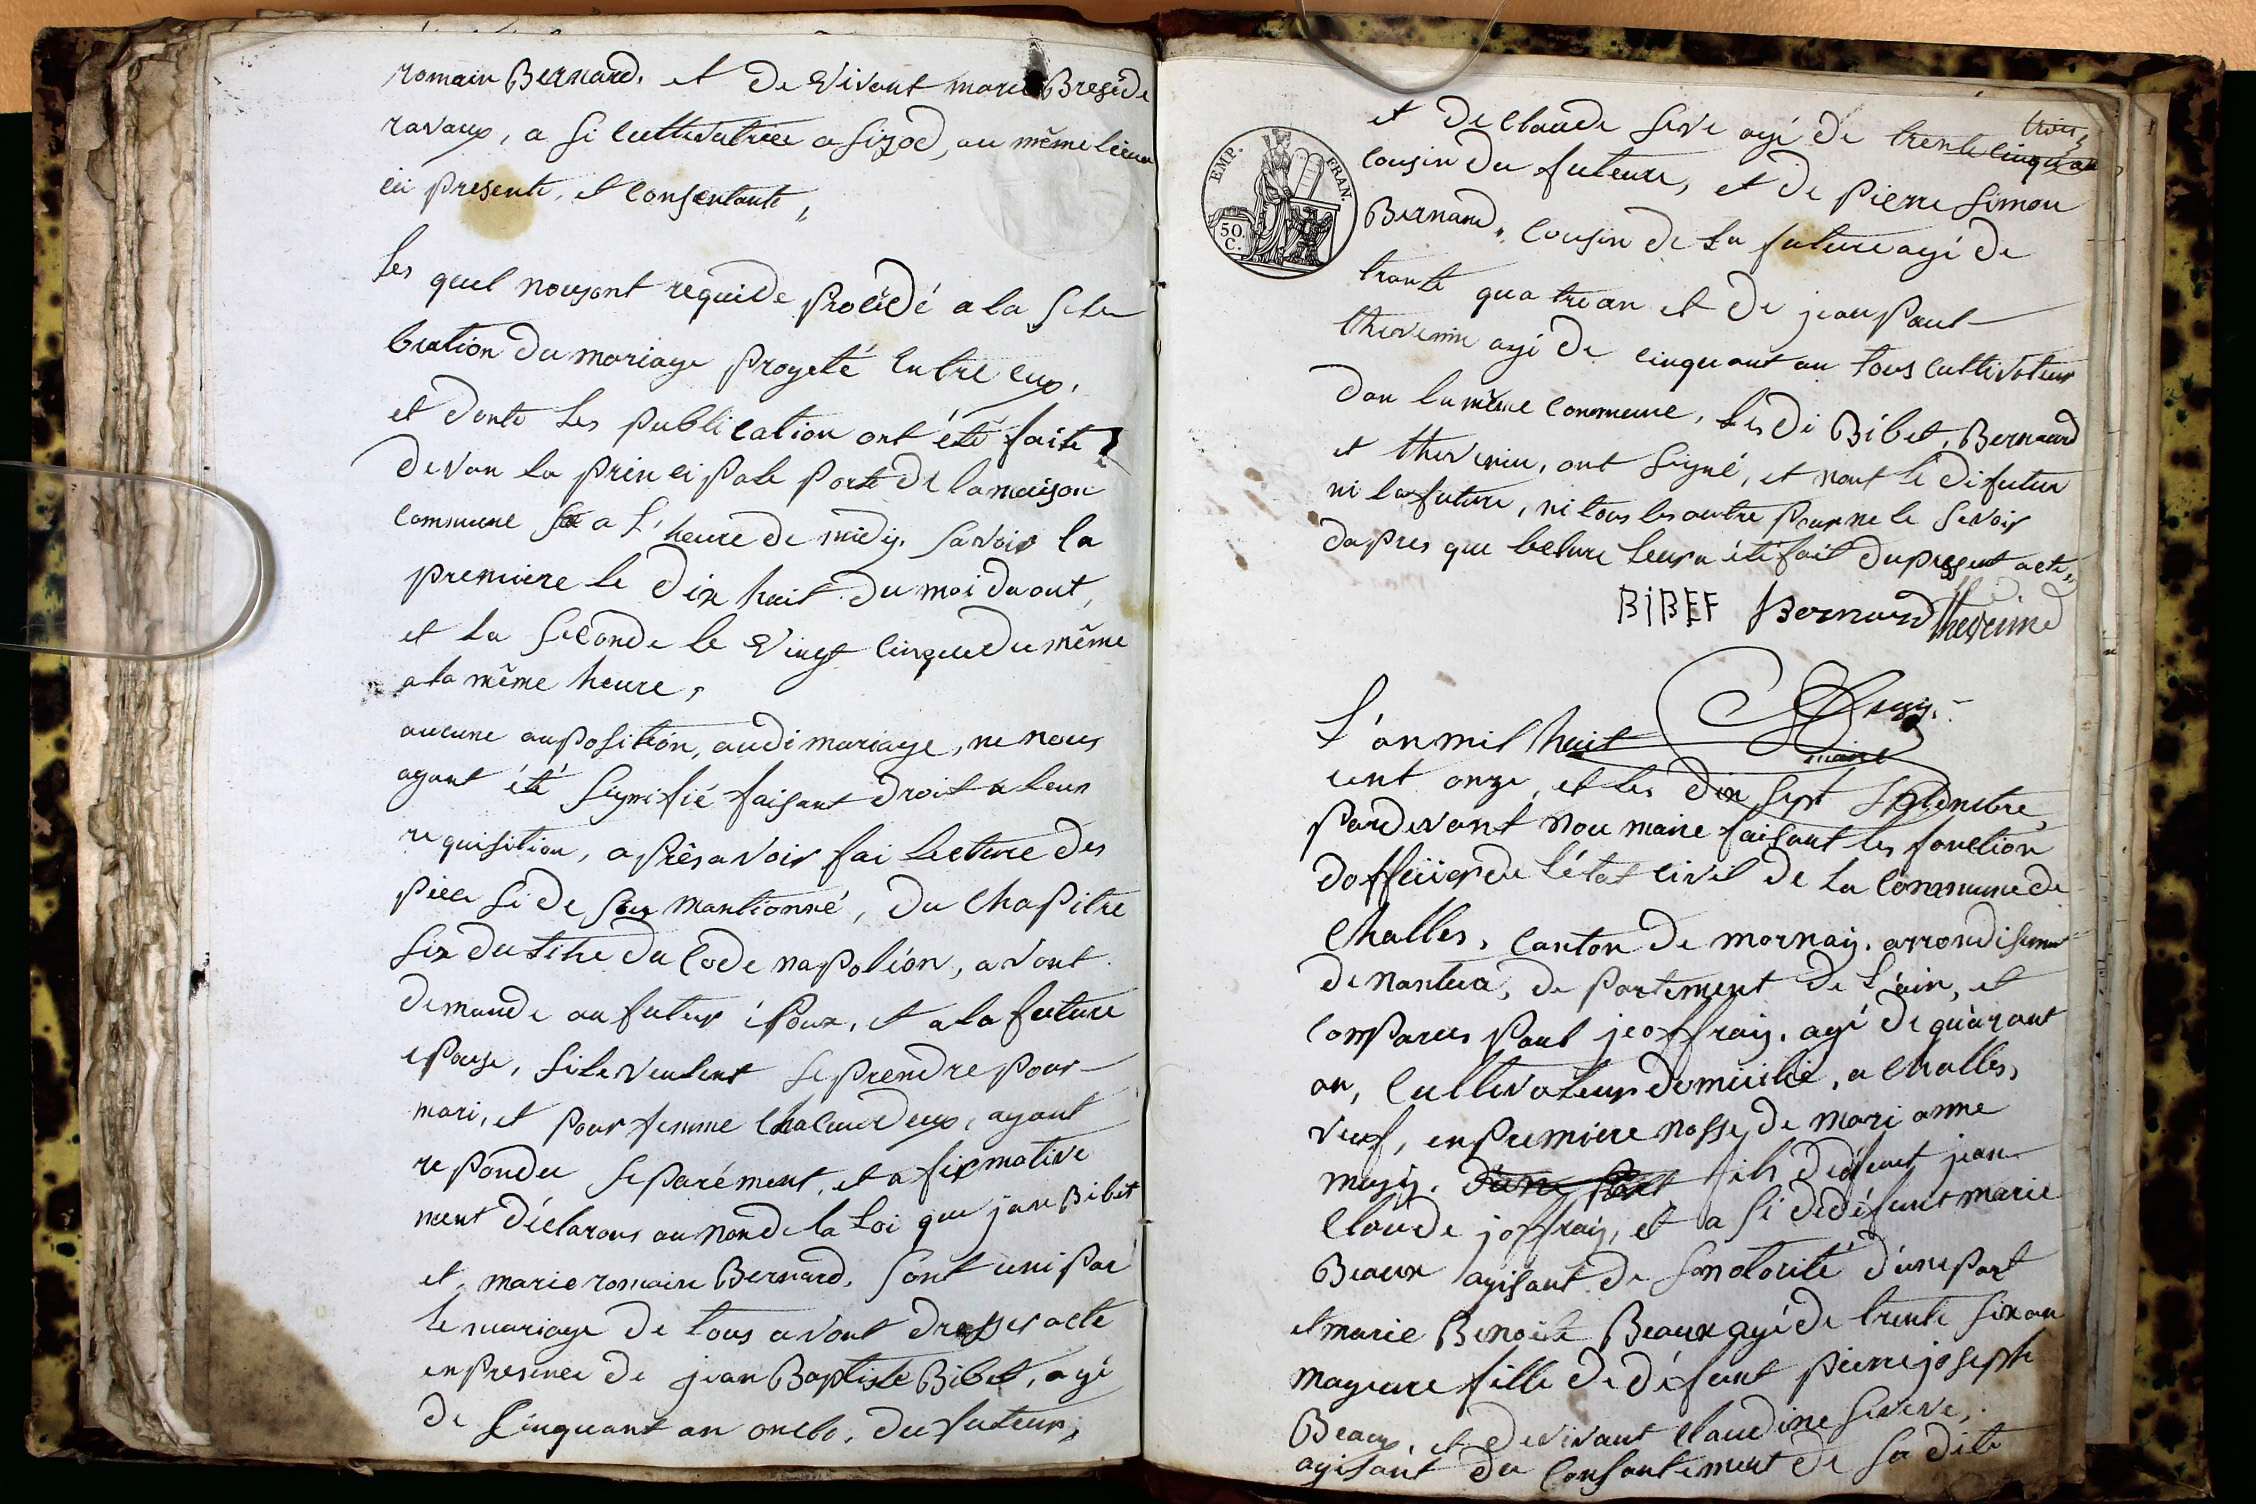 romain Bernard, et De vivant marie Bresede
ravaux, a si cultivatrice a sizod, au même lieux
ici presente, et consentante,
Les quel nousont requide procédé a la sele
bration Du mariage progeté Entre eux,
et Donte Les publication ont été faite
Devan La principale porte De lamaison
commune a L'heure De midy, savoir la
premiere le Dix huit Du moi Daout,
et La seconde le vingt cinque Du même
a la même heure,
aucune auposition, audi mariage, ne nous
ayant été signifié faisant Droit a leur
requisition, aprèsavoir fai lecture Des
piece si De sus mantionné, Du Chapitre
six Du titre Du Code napoléon, avont
Demande au futur époux, et a la future
epouse, sile veulent se prendre pour
mari, et pour femme Chacun Deux, ayant
repondu separément, et afirmative
ment Déclarons au nom De la Loi que jean Bibet
et, marie romaine Bernard, sont uni par
Le mariage De tous avont Dresser acte
en presence De jean Baptiste Bibet, agé
De Cinquant an oncle, Du futeur,
EMP. FRAN.
50. C.
trois,
et De Claude seve agé De trente cinq an
cousin Du futeure, et De pierre simon
Bernard, Cousin De La future agé De
trante quatre an et De jean paul
thevenin agé De cinquant an tous cultivateur
Dan La même Commune, Les Di Bibet, Bernard
et thevenin, ont signé, et nont le Di futur
ni la future, ni tous les autre pour ne le savoir
Dapres que lecture leura été fait Du present acte,
BiBEF Bernard thevenind
maire
L'an mil huit
cent onze, et les Dix sept septembre,
pardevant nou maire faisant les fonction
Dofficier De L'état civil De La Commune De
Challes, Canton De mornay, arrondisement
De nantua, De partement De L'ain, et
Comparus paul jeoffray, agé De quarant
an, Cultivateur Domicilié, a Challes,
veuf, en premiere nosse, De mari anne
D'une part fils De défunt jean
Claude joffray, et a si De défunt marie
Beaux agisant De son otorité D'une part
et marie Benoite Beaux agé De trente six an
mageure fille De Défunt pierre joseph
Beaux, et De vivant Claudine seve,
agisant Du Consantement De sa Dite